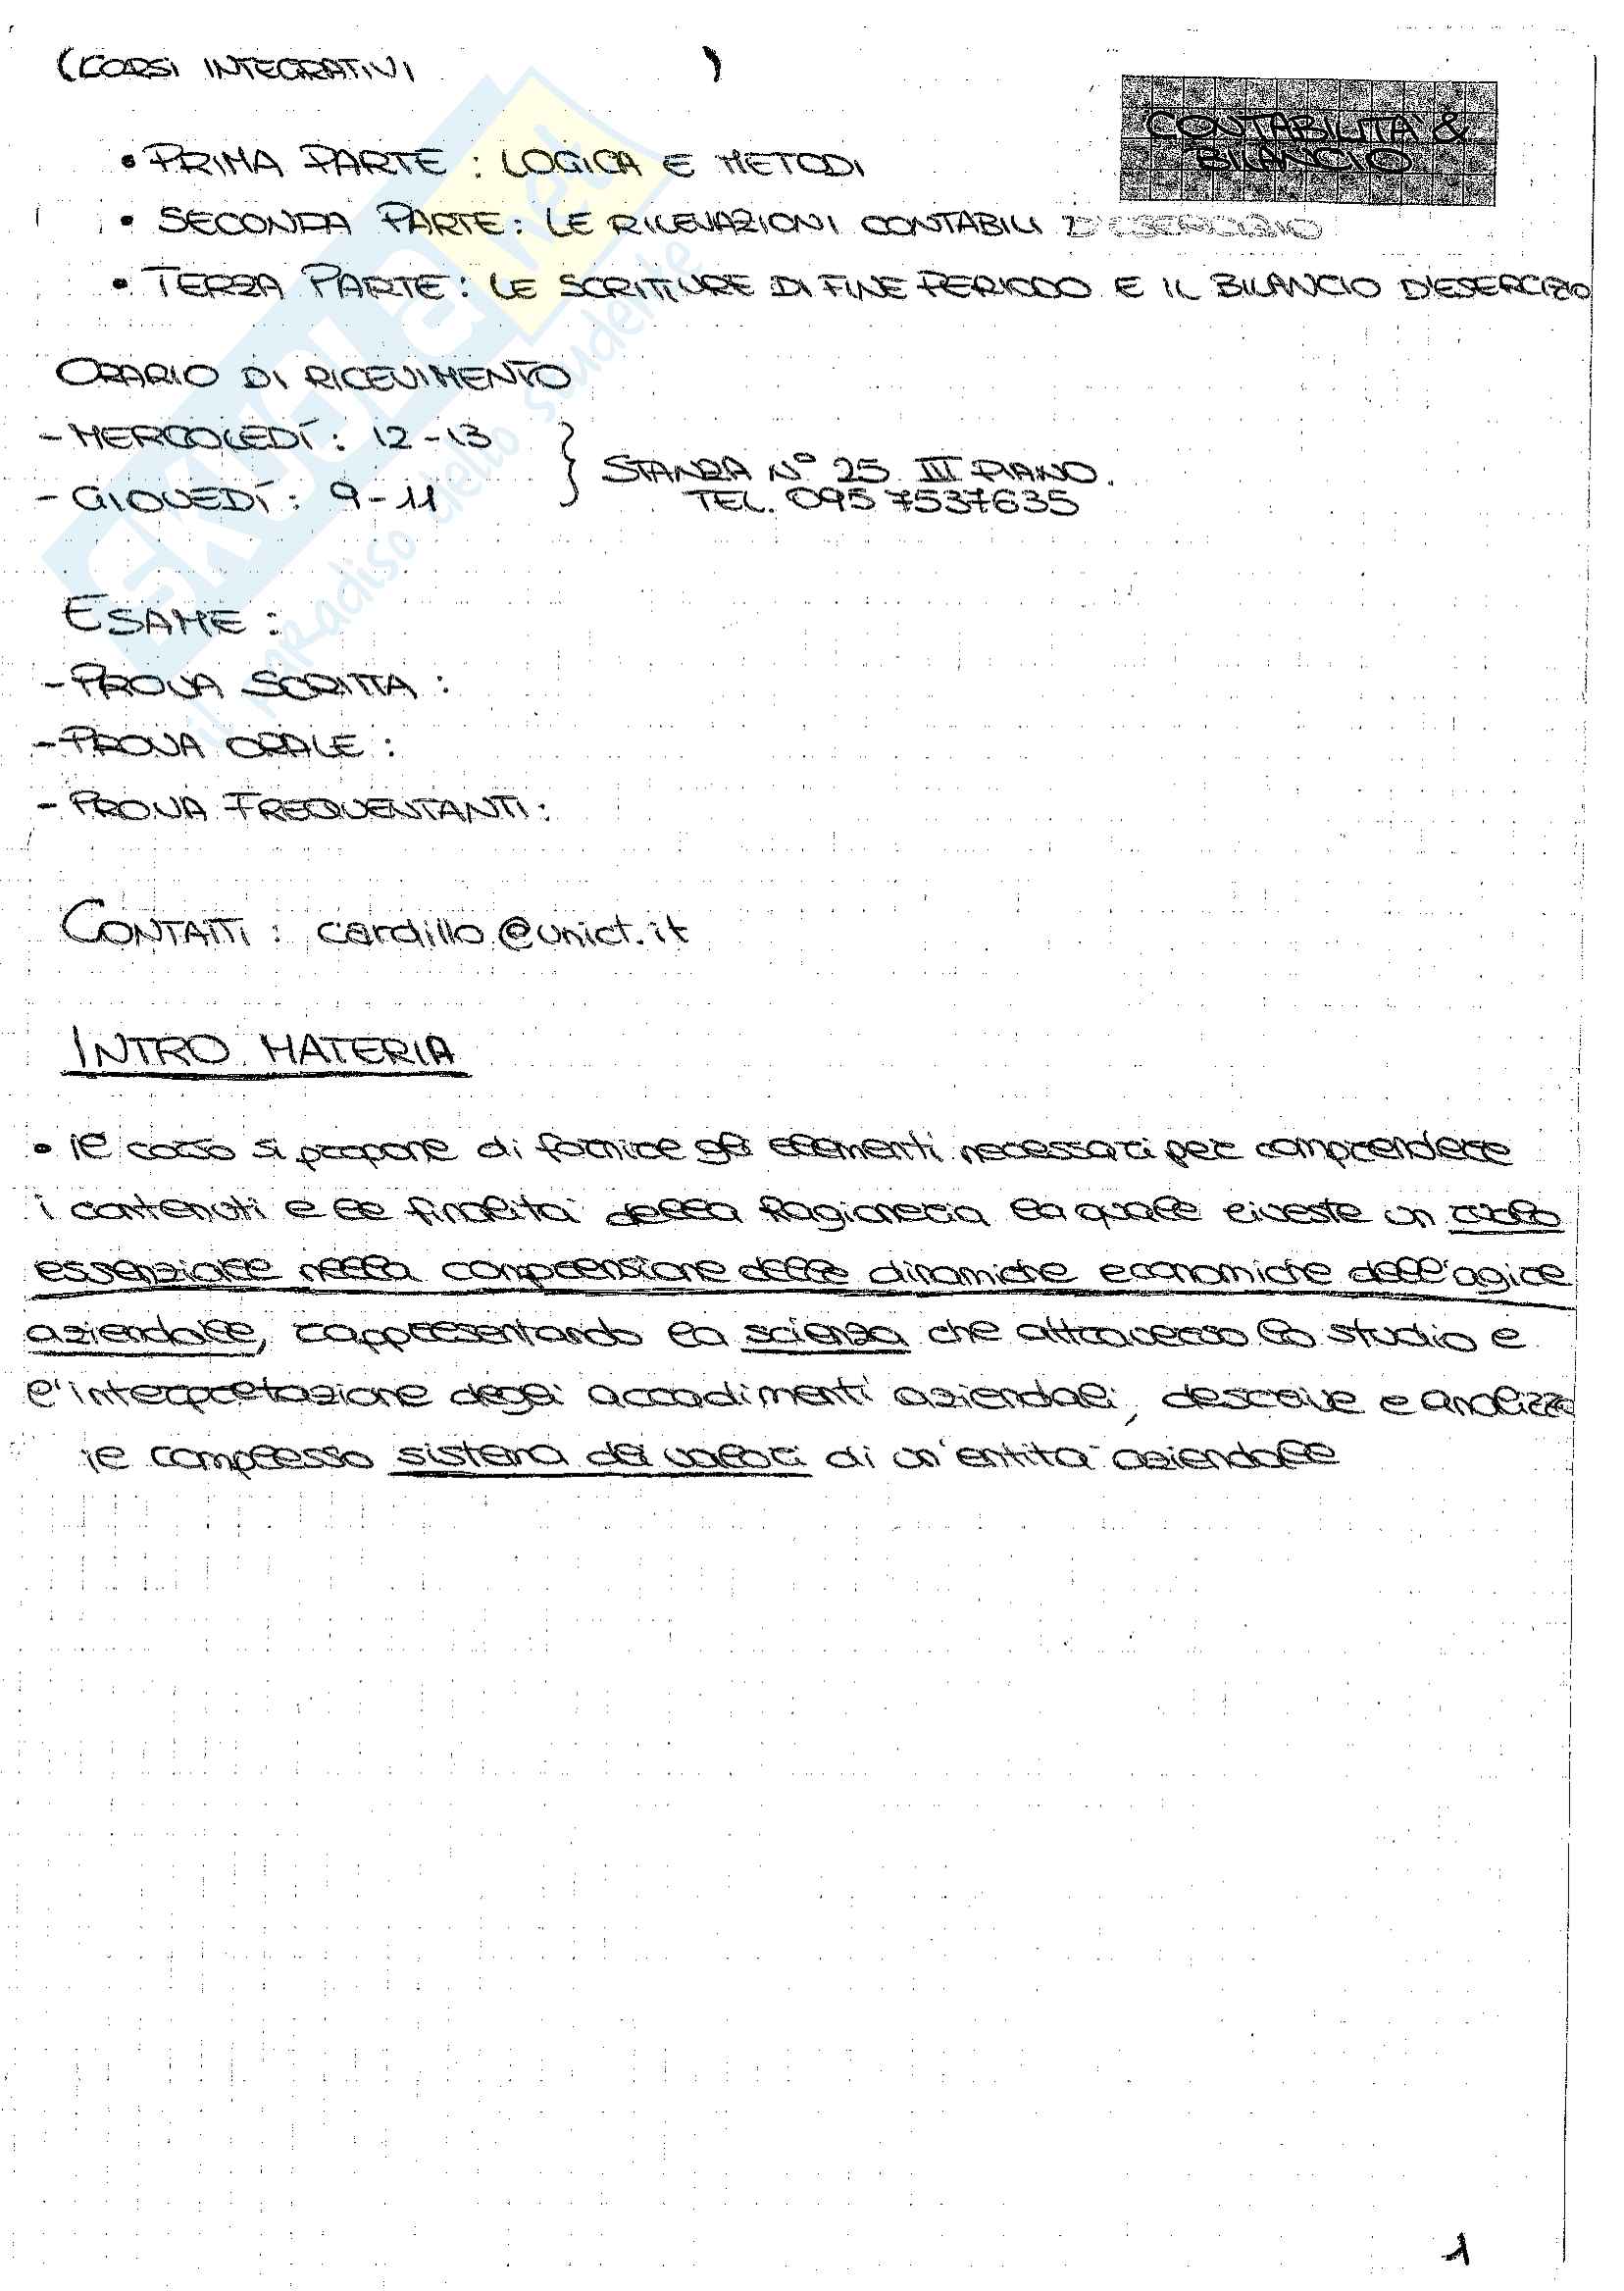 (CORSI INTEGRATIVI )
CONTABILITA' &
BILANCIO
• PRIMA PARTE : LOGICA E METODI
• SECONDA PARTE: LE RILEVAZIONI CONTABILI D'ESERCIZIO
• TERZA PARTE: LE SCRITTURE DI FINE PERIODO E IL BILANCIO D'ESERCIZIO
ORARIO DI RICEVIMENTO
- MERCOLEDÍ: 12-13
- GIOVEDÍ: 9-11
STANZA N° 25 III PIANO.
TEL. 095 7537635
ESAME :
- PROVA SCRITTA :
- PROVA ORALE :
- PROVA FREQUENTANTI:
CONTATTI : cardillo@unict.it
INTRO MATERIA
• il corso si propone di fornire gli elementi necessari per comprendere
i contenuti e le finalità della Ragioneria la quale riveste un ruolo
essenziale nella comprensione delle dinamiche economiche dell'agire
aziendale, rappresentando la scienza che attraverso lo studio e
l'interpretazione degli accadimenti aziendali, descrive e analizza
il complesso sistema dei valori di un'entità aziendale
1
SKUOLA.net
il paradiso dello studente